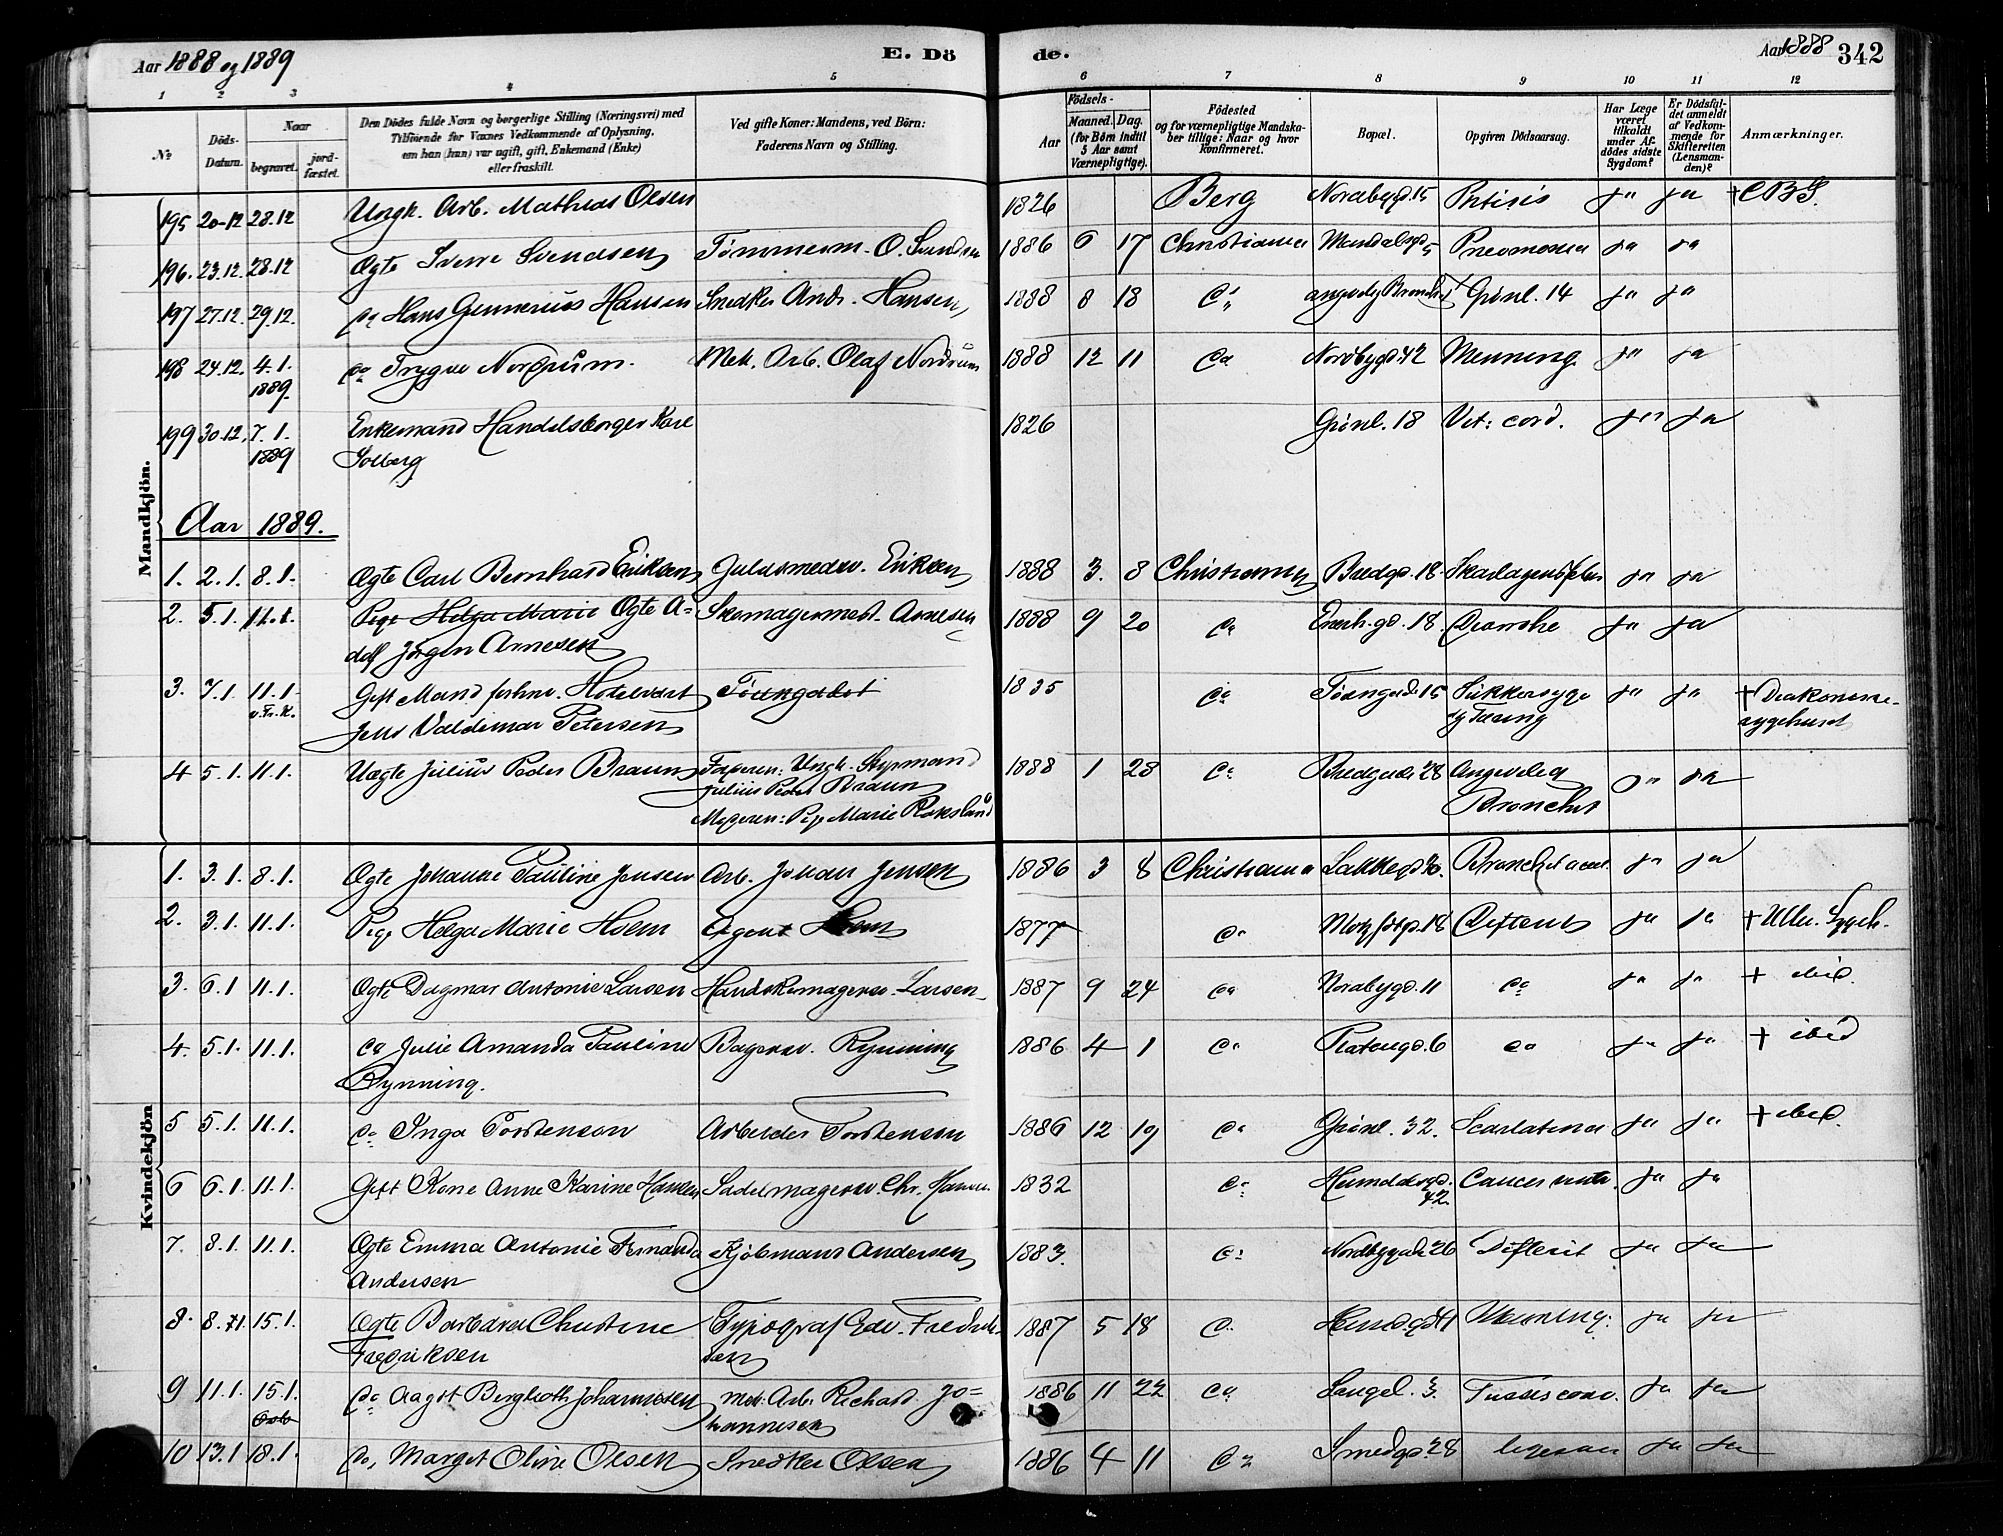 Aar 1888 og 1889
E. Dö
de.
Aar 1888 342
1 2 3 4 5 6 7 8 9 10 11 12
No
Döds-Datum.
Naar
begravet.
jord-fæstet.
Den Dödes fulde Navn og borgerlige Stilling (Næringsvei) med
Tilföiende for Voxnes Vedkommende af Oplysning,
om han (hun) var ugift, gift, Enkemand (Enke)
eller fraskilt.
Ved gifte Koner: Mandens, ved Börn:
Faderens Navn og Stilling.
Födsels-
Aar
Maaned. Dag.
(for Börn indtil
5 Aar samt
Værnepligtige).
Födested
og for værnepligtige Mandska-
ber tillige: Naar og hvor
konfirmeret.
Bopæl.
Opgiven Dödsaarsag.
Har Læge
været
tilkaldt
under Af-
dödes sidste
Sygdom?
Er Dödsfal-
det anmeldt
af Vedkom-
mende for
Skifteretten
(Lensman-
den)?
Anmærkninger.
Mandkjön.
195 20-12 28.12 Ungk. Arb. Mathias Olsen 1826 Berg Nordbygd. 15 Phtisis ja ja + CBS.
196. 23.12. 28.12 Ægte Sverre Svendsen Tömmerm. O. Svendsen 1886 6 17 Christiania Mandalsgd. 5 Pneumonia ja ja
197 27.12. 29.12. do Hans Gennerius Hansen Snedker Andr. Hansen 1888 8 18 do Grönl. 14 ja ja
198 24.12. 4.1. 1889. do Trygve Nordrum. Mek. Arb. Olaf Nordrum 1888 12 11 do Nordbygd. 42 Menning. ja ja
199 30.12. 7.1. 1889 Enkemand Handelsborger Karl
Solberg 1826 Grönl. 18 Vit: cord. ja ja
Aar 1889.
1. 2.1. 8.1. Ægte Carl Bernhard Eriksen Guldsmedsv. Eriksen 1888 3. 8 Christiania Bredgd. 18. Skarlagensfeber ja ja
2. 5.1. 11.1. Pige Helga Marie Ægte A=
dolf Jörgen Arnesen Skomagermest. Arnesen 1888 9 20 do 18. ja ja
3. 7.1. 11.1. v.Fr.K. Gift Mand forhnv. Hotelvært
Jens Valdimar Petersen 1835 do 15 Sukkersyge
og Tæring ja ja + Diakonisse-
sygehuset
4 5.1. 11.1. Uægte Julius Peder Braun Faderen: Ungk. Styrmand
Julius Peder Braun
Moderen: Pige Marie Roksland 1888 1 28 do Bredgade 28 Angivelig
Bronchit ja ja
Kvindekjön
1. 3.1. 8.1. Ægte Johanne Pauline Jensen Arb. Johan Jensen 1886 3 8 Christiania Lakkegd. Bronchit acut. ja ja
2. 3.1. 11.1. Pige Helga Marie Holm Agent Holm 1877 do Motzfdtgd. 18 Difterit ja ja + Ullev. Sygeh.
3. 6.1 11.1. Ægte Dagmar Antonie Larsen Handskemagersv. Larsen 1887 9 24 do Nordbygd. 11 do ja ja + ibid.
4. 5.1. 11.1. do Julie Amanda Pauline
Rynning. Bagersv. Rynning 1886 4 1 do Platougd. 6 do ja ja + ibid
5 5.1. 11.1. do Inga Torstenson Arbeider Torstenson 1886 12 19 do Grönl. 32. Scarlatina ja ja + ibid.
6 6.1. 11.1. Gift Kone Anne Karine Hansen Sadelmagersv. Chr. Hansen 1832 do Heimdalsgd.
42. Cancer ja ja
7. 8.1. 11.1. Ægte Emma Antonie Fernanda
Andersen Kjöbmand Andersen 1883. do Nordbygade 26 Difterit ja ja
8. 8.1. 15.1. Ægte Barbara Christine
Fredriksen Typograf Edv. Fredrik-
sen 1887 5 18 do Menning. ja ja
9 11.1. 15.1. do Aagot Berglioth Johannesen Mek. Arb. Richard Jo=
hannesen 1886 11 22 do Langel. 3. Tussis conv. ja ja
10 13.1 18.1. do, Margit Oline Olsen Snedker Olsen 1886 4 11 do Smedgd. 28 ja ja